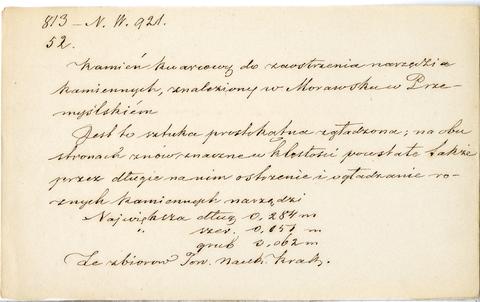 813 – N. W. 921.
52.
Kamień kwarcowy do zaostrzenia narzędzia
kamiennych, znaleziony w Morawsku w Prze-
myślskiém
Jest to sztuka prostokątna zgładzona; na obu
stronach znów znaczne wklęsłości powstałe także
przez długie na nim ostrzenie i wgładzanie ro-
żnych kamiennych narzędzi
Największa dług. 0,284 m
" szer. 0,051 m
grub 0,062 m
Ze zbiorów Tow. nauk. krak.